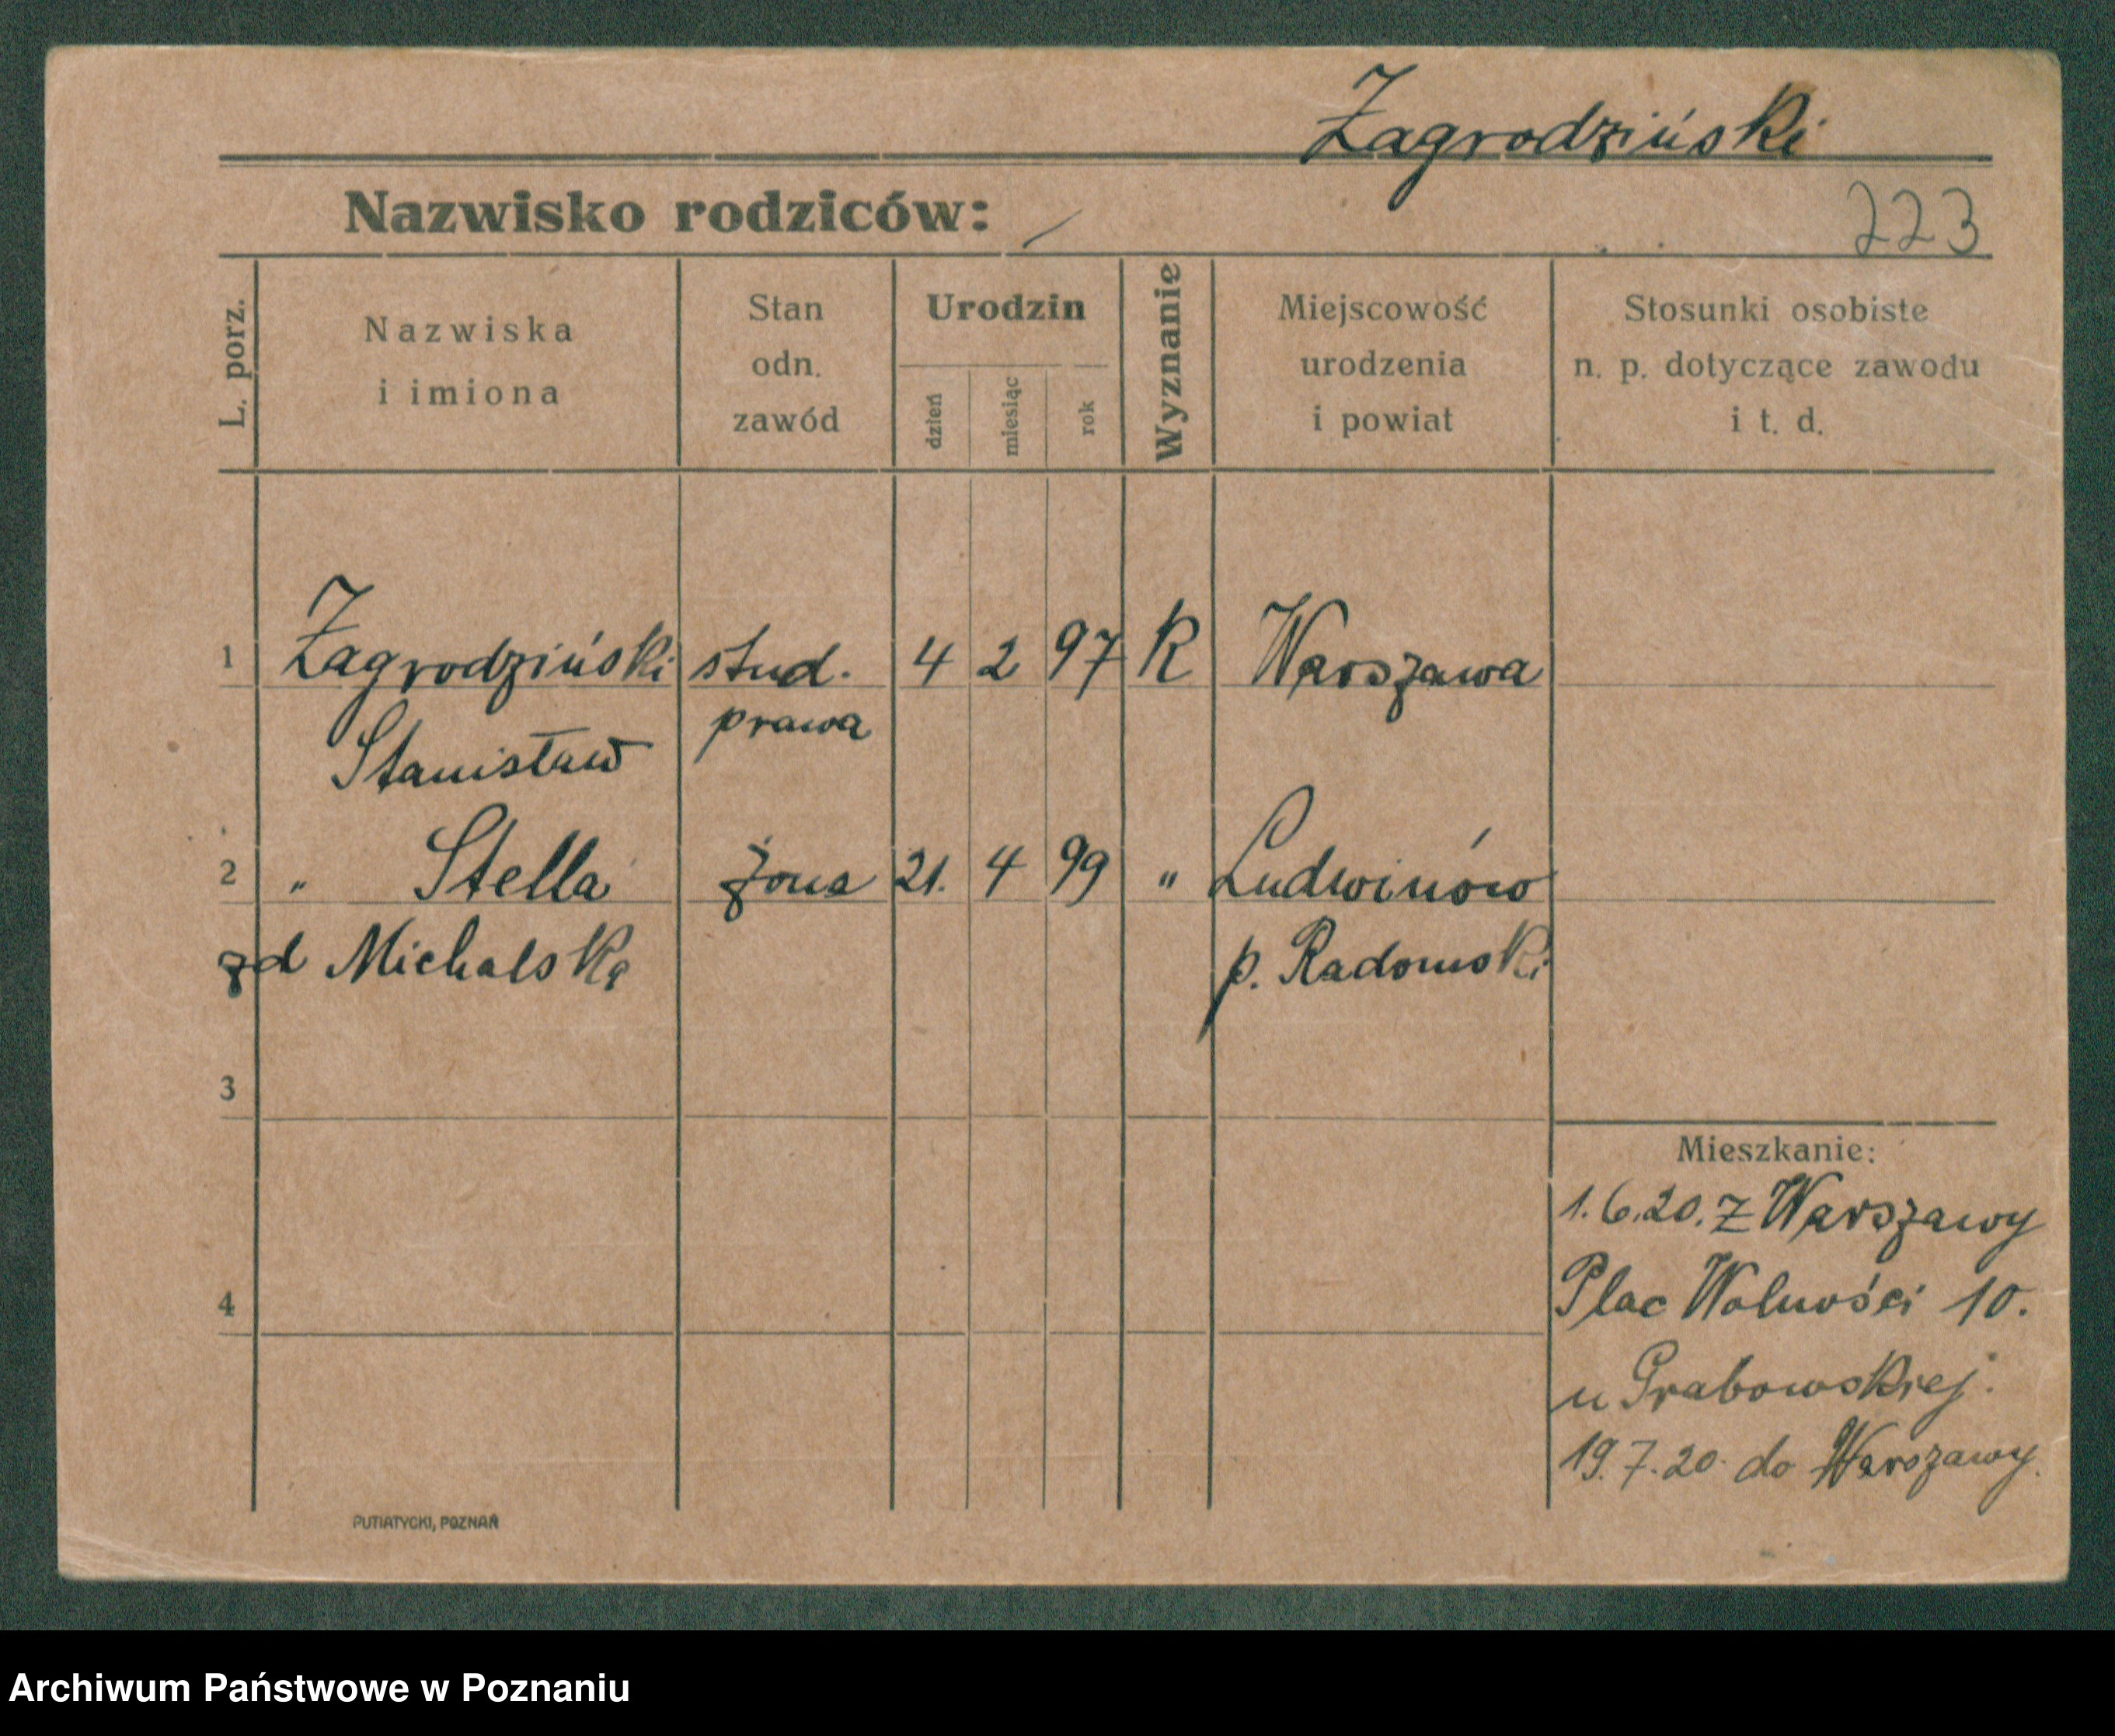 Zagrodziński
Nazwisko rodziców:
223
L. porz.
Nazwiska
i imiona
Stan
odn.
zawód
Urodzin
dzień
miesiąc
rok
Wyznanie
Miejscowość
urodzenia
i powiat
Stosunki osobiste
n. p. dotyczące zawodu
i t. d.
1 Zagrodziński stud. 4 2 97 K Warszawa
prawa
Stanisław
2 " Stella żona 21. 4 99 " Ludwinów
zd Michalska p. Radomski
3
Mieszkanie:
1.6.20. z Warszawy
4
Plac Wolności 10.
u Grabowskiej.
19.7.20. do Warszawy.
PUTIATYCKI, POZNAŃ
Archiwum Państwowe w Poznaniu